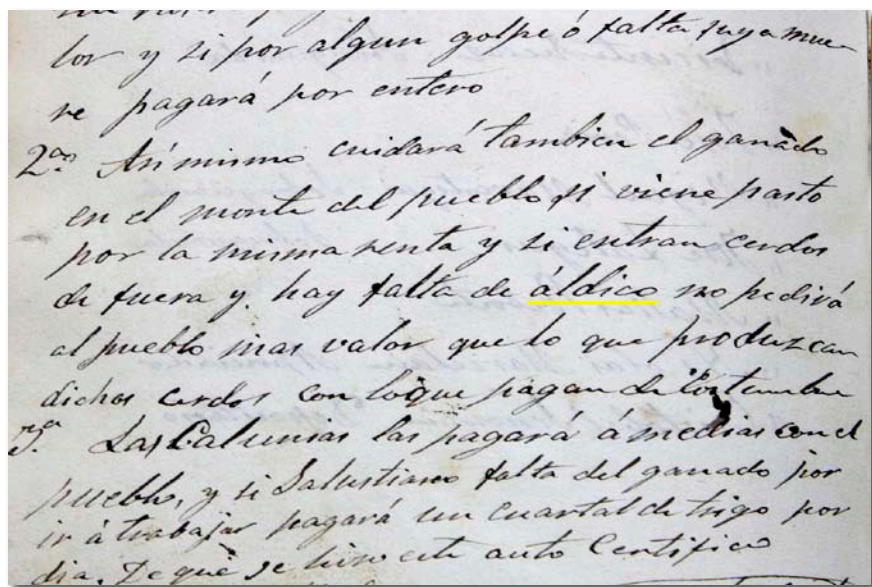 lor y si por algun golpe ó falta suya mue-
re pagará por entero
2ª Asi mismo cuidará tambien el ganado
en el monte del pueblo si viene pasto
por la misma renta y si entran cerdos
de fuera y hay falta de áldico no pedirá
al pueblo mas valor que lo que produzcan
dichos cerdos con lo que pagan de costumbre
3ª Las Calunias las pagará á medias con el
pueblo, y si Salustiano falta del ganado por
ir á trabajar pagará un cuartal de trigo por
dia. De que se hiso este auto Certifico